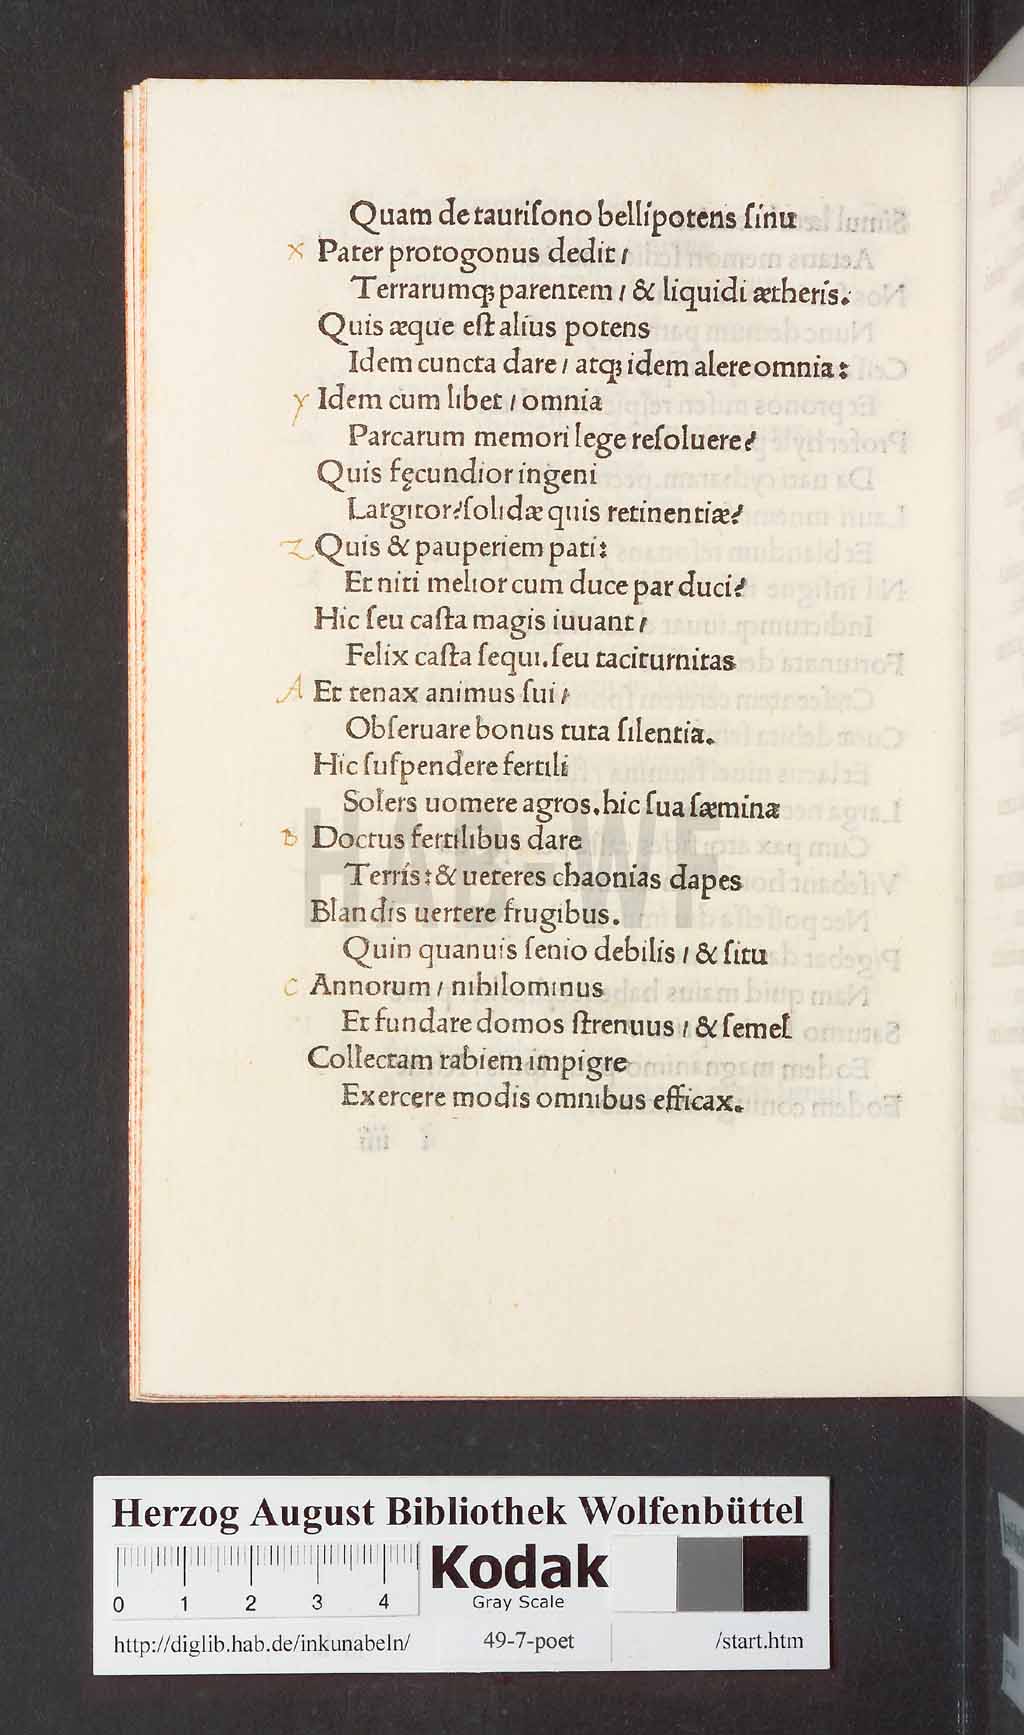 Quam de tauriſono bellipotens ſinu
x Pater protogonus dedit /
Terrarumqꝫ parentem / & liquidi ætheris.
Quis æque eſt alius potens
Idem cuncta dare / atqꝫ idem alere omnia:
y Idem cum libet / omnia
Parcarum memori lege reſoluere?
Quis fęcundior ingeni
Largitor? ſolidæ quis retinentiæ?
z Quis & pauperiem pati:
Et niti melior cum duce par duci?
Hic ſeu caſta magis iuuant /
Felix caſta ſequi. ſeu taciturnitas
A Et tenax animus ſui /
Obſeruare bonus tuta ſilentia.
Hic ſuſpendere fertili
Solers uomere agros. hic ſua ſæmina
B Doctus fertilibus dare
Terris: & ueteres chaonias dapes
Blandis uertere frugibus.
Quin quanuis ſenio debilis / & ſitu
C Annorum / nihilominus
Et fundare domos ſtrenuus / & ſemel
Collectam rabiem impigre
Exercere modis omnibus efficax.
HAB-WF
Herzog August Bibliothek Wolfenbüttel
0 1 2 3 4
Kodak
Gray Scale
http://diglib.hab.de/inkunabeln/ 49-7-poet /start.htm